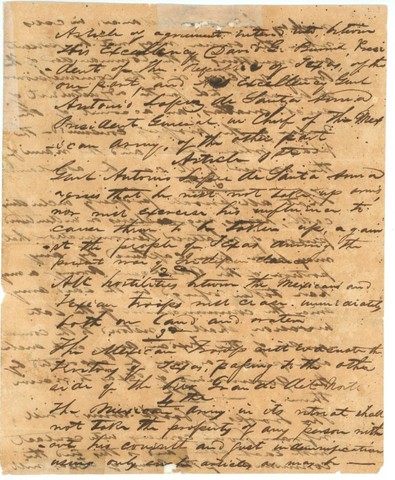 Article of agreement entered into between
His Excellency David G. Burnet Presi
dent of the Republic of Texas, of the
one part, and His Excellency Genl
Antonio Lopez de Santa Anna
President General in Chief of the Mex
ican Army, of the other part
Article 1st
Genl Antonio Lopez de Santa Anna
agrees that he will not take up arms
nor will exercise his influence to
cause them to be taken up, again
st the people of Texas during the
present war of Independence
2d
All hostilities between the Mexican and
Texian troops will cease immediately
both on land and water
3d
The Mexican troops will evacuate the
Territory of Texas, passing to the other
side of the Rio Grande del Norte
4th
The Mexican army in its retreat shall
not take the property of any person with
out his consent and just indemnification
using only such articles as may be